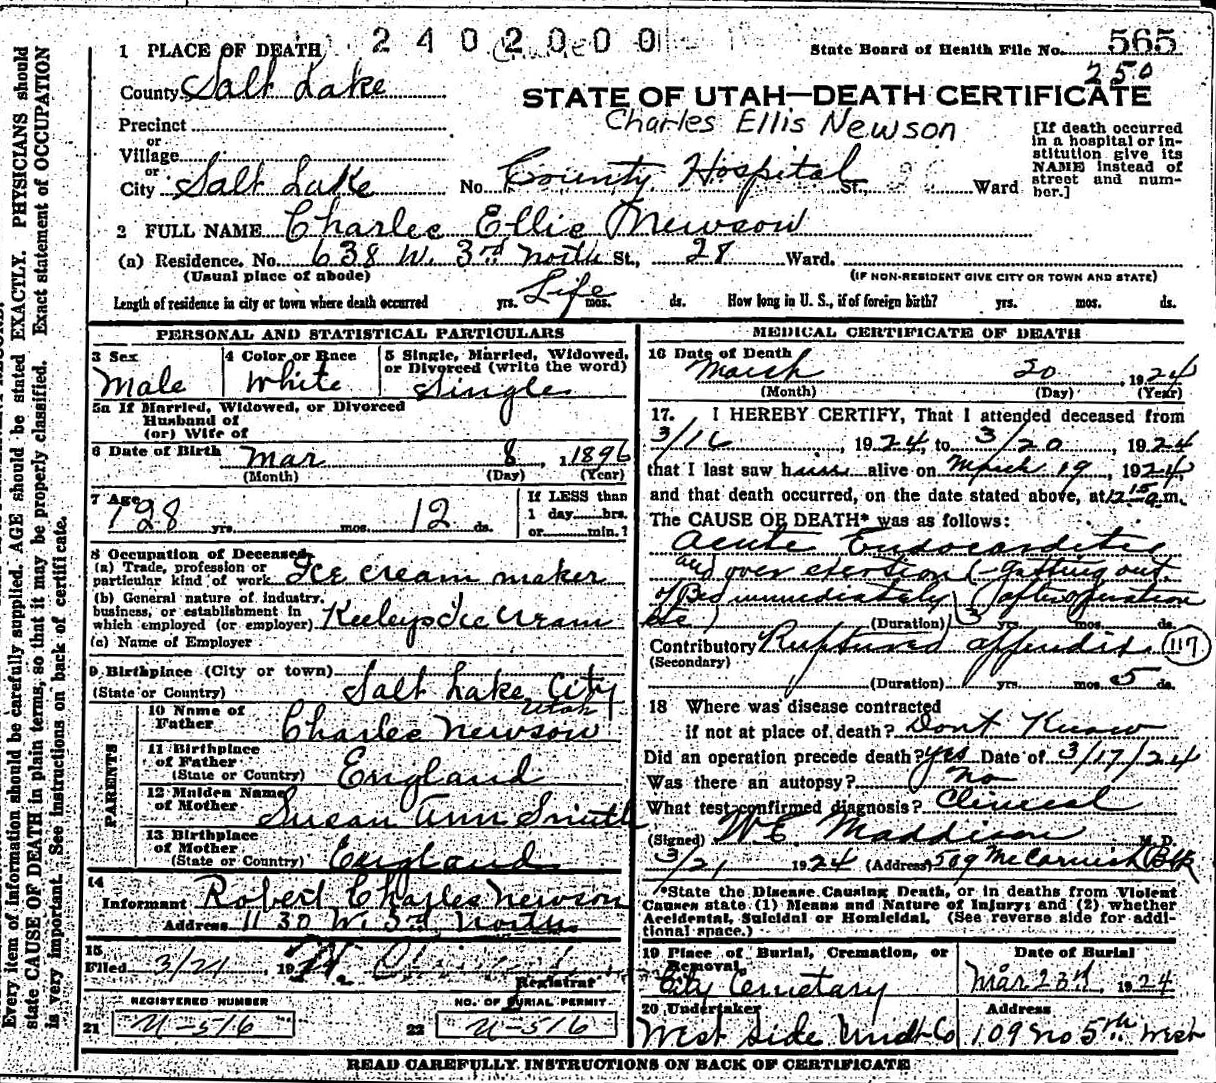 2 4 0 2 0 0 0
1 PLACE OF DEATH
State Board of Health File No. 565
250
County Salt Lake
STATE OF UTAH—DEATH CERTIFICATE
Charles Ellis Newson
Precinct
or
Village
or
City Salt Lake No. County Hospital St. Ward
[If death occurred in a hospital or institution give its NAME instead of street and number.]
2 FULL NAME Charles Ellis Newson
(a) Residence. No. 638 W. 3rd North St., 28 Ward.
(Usual place of abode) (IF NON-RESIDENT GIVE CITY OR TOWN AND STATE)
Length of residence in city or town where death occurred yrs. Life mos. ds. How long in U. S., if of foreign birth? yrs. mos. ds.
PERSONAL AND STATISTICAL PARTICULARS
3 Sex Male
4 Color or Race White
5 Single, Married, Widowed, or Divorced (write the word) Single
5a If Married, Widowed, or Divorced
Husband of
(or) Wife of
6 Date of Birth Mar 8, 1896
(Month) (Day) (Year)
7 Age 28 yrs. mos. 12 ds.
If LESS than
1 day hrs.
or min.?
8 Occupation of Deceased
(a) Trade, profession or
particular kind of work Ice cream maker
(b) General nature of industry,
business, or establishment in
which employed (or employer) Keeleys Ice Cream
(c) Name of Employer
9 Birthplace (City or town)
(State or Country) Salt Lake City
Utah
PARENTS
10 Name of
Father Charles Newson
11 Birthplace
of Father
(State or Country) England
12 Maiden Name
of Mother Susan Ann Smith
13 Birthplace
of Mother
(State or Country) England
14
Informant Robert Charles Newson
Address 1130 W. 3rd North
15
Filed 3/21, 19
Registrar
REGISTERED NUMBER
21 U-516
NO. OF BURIAL PERMIT
22 U-516
MEDICAL CERTIFICATE OF DEATH
16 Date of Death
March 20, 1924
(Month) (Day) (Year)
17. I HEREBY CERTIFY, That I attended deceased from
3/16, 1924, to 3/20, 1924
that I last saw him alive on March 19, 1924,
and that death occurred, on the date stated above, at 12 15 a.m.
The CAUSE OF DEATH* was as follows:
Acute Endocarditis
and over exertion (-Getting out
of Bed immediately after operation
etc) (Duration) 3 yrs. mos. ds.
Contributory Ruptured appendix 117
(Secondary)
(Duration) yrs. mos. 5 ds.
18 Where was disease contracted
if not at place of death? Dont Know
Did an operation precede death? yes Date of 3/17/24
Was there an autopsy? no
What test confirmed diagnosis? Clinical
(Signed) W E Maddison M. D.
3/21 1924 (Address) 509 McCornick Blk
*State the Disease Causing Death, or in deaths from Violent
Causes state (1) Means and Nature of Injury; and (2) whether
Accidental, Suicidal or Homicidal. (See reverse side for additional space.)
19 Place of Burial, Cremation, or
Removal
City Cemetary
Date of Burial
Mar 23rd, 1924
20 Undertaker
West Side Undt Co
Address
109 no 5th West
READ CAREFULLY INSTRUCTIONS ON BACK OF CERTIFICATE
Every item of information should be carefully supplied. AGE should be stated EXACTLY. PHYSICIANS should
state CAUSE OF DEATH in plain terms, so that it may be properly classified. Exact statement of OCCUPATION
is very important. See instructions on back of certificate.